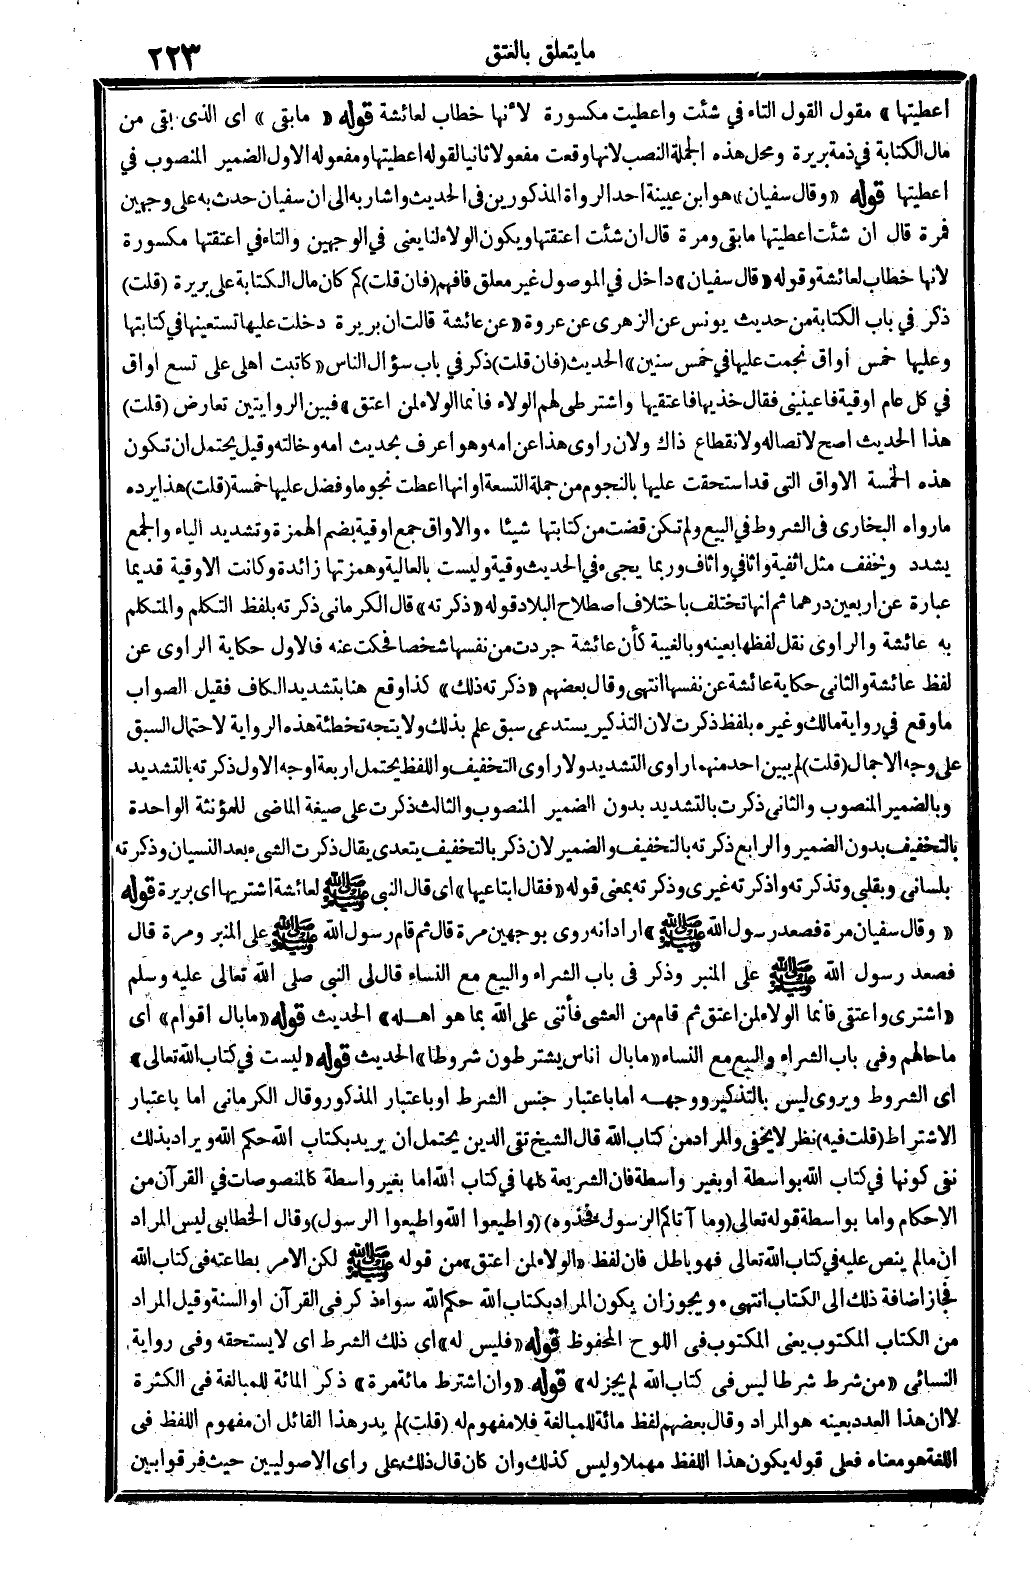 مايتعلق بالعتق ٢٢٣
اعطيتها » مقول القول التاء في شئت واعطيت مكسورة لأنها خطاب لعائشة قوله « مابقى » اى الذى بقى من
مال الكتابة في ذمة بريرة ومحل هذه الجملة النصب لانها وقعت مفعولا ثانيا لقوله اعطيتها ومفعوله الاول الضمير المنصوب في
اعطيتها قوله « وقال سفيان » هو ابن عيينة احد الرواة المذكورين فى الحديث واشار به الى ان سفيان حدث به على وجهين
فمرة قال ان شئت اعطيتها مابقى ومرة قال ان شئت اعتقتها ويكون الولاء لنا يعنى في الوجهين والتاء في اعتقتها مكسورة
لانها خطاب لعائشة وقوله « قال سفيان » داخل في الموصول غير معلق فافهم (فان قلت) كم كان مال الكتابة على بريرة (قلت)
ذكر في باب الكتابة من حديث يونس عن الزهرى عن عروة « عن عائشة قالت ان بريرة دخلت عليها تستعينها في كتابتها
وعليها خمس أواق نجمت عليها في خمس سنين » الحديث (فان قلت) ذكر في باب سؤال الناس « كاتبت اهلى على تسع اواق
في كل عام اوقية فاعينينى فقال خذيها فاعتقيها واشترطى لهم الولاء فانما الولاء لمن اعتق » فبين الروايتين تعارض (قلت)
هذا الحديث اصح لاتصاله ولانقطاع ذاك ولان راوى هذا عن امه وهو اعرف بحديث امه وخالته وقيل يحتمل ان تكون
هذه الخمسة الاواق التى قد استحقت عليها بالنجوم من جملة التسعة او انها اعطت نجوما وفضل عليها خمسة (قلت) هذا يرده
مارواه البخارى فى الشروط في البيع ولم تكن قضت من كتابتها شيئا ٠ والاواق جمع اوقية بضم الهمزة وتشديد الياء والجمع
يشدد ويخفف مثل اثفية واثافي واثاف وربما يجىء في الحديث وقية وليست بالعالية وهمزتها زائدة وكانت الاوقية قديما
عبارة عن اربعين درهما ثم انها تختلف باختلاف اصطلاح البلاد قوله « ذكرته » قال الكرمانى ذكرته بلفظ التكلم والمتكلم
به عائشة والراوى نقل لفظها بعينه وبالغيبة كأن عائشة جردت من نفسها شخصا فحكت عنه فالاول حكاية الراوى عن
لفظ عائشة والثانى حكاية عائشة عن نفسها انتهى وقال بعضهم « ذكرته ذلك » كذا وقع هنا بتشديد الكاف فقيل الصواب
ماوقع في رواية مالك وغيره بلفظ ذكرت لان التذكير يستدعى سبق علم بذلك ولا يتجه تخطئة هذه الرواية لاحتمال السبق
على وجه الاجمال (قلت) لم يبين احد منهما راوى التشديد ولا راوى التخفيف واللفظ يحتمل اربعة اوجه الاول ذكرته بالتشديد
وبالضمير المنصوب والثانى ذكرت بالتشديد بدون الضمير المنصوب والثالث ذكرت على صيغة الماضى للمؤنثة الواحدة
بالتخفيف بدون الضمير والرابع ذكرته بالتخفيف والضمير لان ذكر بالتخفيف يتعدى يقال ذكرت الشىء بعد النسيان وذكرته
بلسانى وبقلبى وتذكرته واذكرته غيرى وذكرته بمعنى قوله « فقال ابتاعيها » اى قال النبى ﷺ لعائشة اشتريها اى بريرة قوله
« وقال سفيان مرة فصعد رسول الله ﷺ » اراد انه روى بوجهين مرة قال ثم قام رسول الله ﷺ على المنبر ومرة قال
فصعد رسول الله ﷺ على المنبر وذكر فى باب الشراء والبيع مع النساء قال لى النبى صلى الله تعالى عليه وسلم
« اشترى واعتقى فانما الولاء لمن اعتق ثم قام من العشى فأثنى على الله بما هو اهله » الحديث قوله « مابال اقوام » اى
ماحالهم وفى باب الشراء والبيع مع النساء « مابال اناس يشترطون شروطا » الحديث قوله « ليست في كتاب الله تعالى »
اى الشروط ويروى ليس بالتذكير ووجهه اما باعتبار جنس الشرط او باعتبار المذكور وقال الكرمانى اما باعتبار
الاشتراط (قلت فيه) نظر لا يخفى والمراد من كتاب الله قال الشيخ تقى الدين يحتمل ان يريد بكتاب الله حكم الله ويراد بذلك
نفى كونها في كتاب الله بواسطة او بغير واسطة فان الشريعة كلها في كتاب الله اما بغير واسطة كالمنصوصات في القرآن من
الاحكام واما بواسطة قوله تعالى (وما آتاكم الرسول فخذوه) (واطيعوا الله واطيعوا الرسول) وقال الخطابى ليس المراد
ان مالم ينص عليه في كتاب الله تعالى فهو باطل فان لفظ « الولاء لمن اعتق » من قوله ﷺ لكن الامر بطاعته فى كتاب الله
فجاز اضافة ذلك الى الكتاب انتهى ٠ ويجوز ان يكون المراد بكتاب الله حكم الله سواء ذكر فى القرآن او السنة وقيل المراد
من الكتاب المكتوب يعنى المكتوب فى اللوح المحفوظ قوله « فليس له » اى ذلك الشرط اى لا يستحقه وفى رواية
النسائى « من شرط شرطا ليس فى كتاب الله لم يجز له » قوله « وان اشترط مائة مرة » ذكر المائة للمبالغة فى الكثرة
لا ان هذا العدد بعينه هو المراد وقال بعضهم لفظ مائة للمبالغة فلا مفهوم له (قلت) لم يدر هذا القائل ان مفهوم اللفظ فى
اللغة هو معناه فعلى قوله يكون هذا اللفظ مهملا وليس كذلك وان كان قال ذلك على راى الاصوليين حيث فرقوا بين